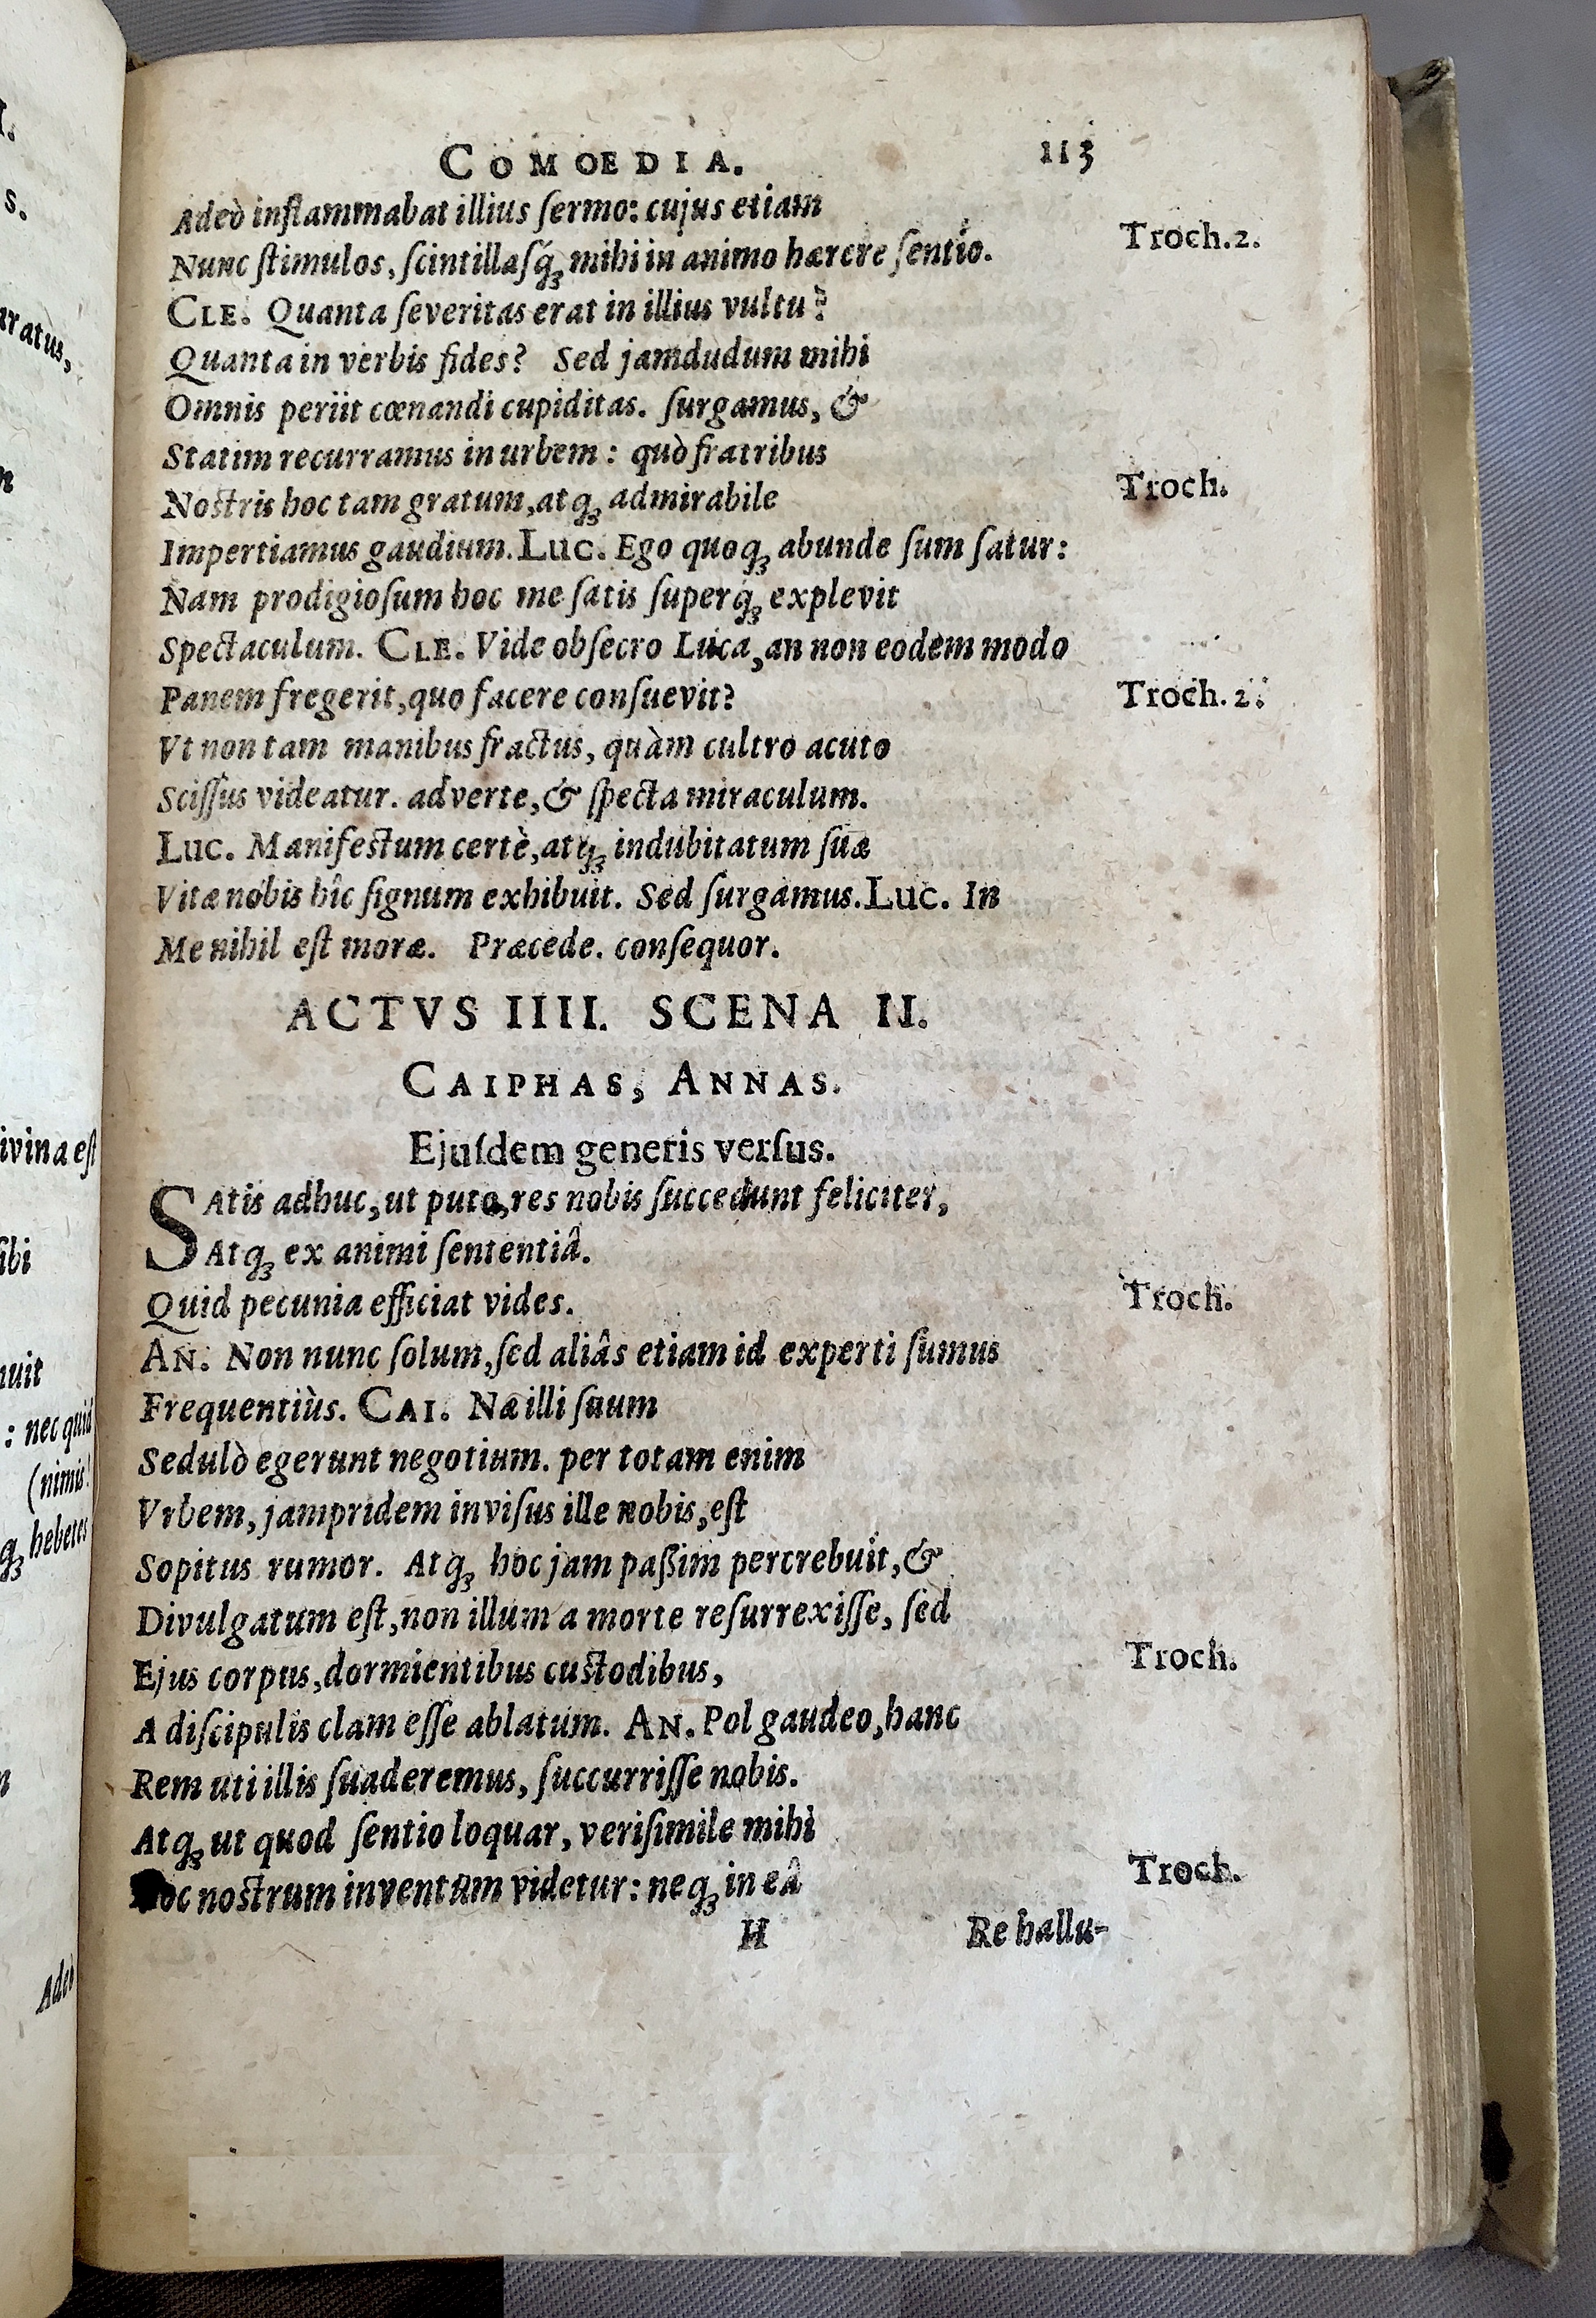 COMOEDIA. 113
Adeò inflammabat illius ſermo: cujus etiam
Nunc ſtimulos, ſcintillaſq́ꝫ mihi in animo hærere ſentio. Troch.2.
CLE. Quanta ſeveritas erat in illius vultu?
Quanta in verbis fides? Sed jamdudum mihi
Omnis periit cœnandi cupiditas. ſurgamus, &
Statim recurramus in urbem: quò fratribus
Noſtris hoc tam gratum, atqꝫ admirabile Troch.
Impertiamus gaudium. Luc. Ego quoqꝫ abunde ſum ſatur:
Nam prodigioſum hoc me ſatis ſuperq́ꝫ explevit
Spectaculum. CLE. Vide obſecro Luca, an non eodem modo
Panem fregerit, quo facere conſuevit? Troch.2.
Vt non tam manibus fractus, quàm cultro acuto
Sciſſus videatur. adverte, & ſpecta miraculum.
Luc. Manifeſtum certè, atqꝫ indubitatum ſuæ
Vitæ nobis hîc ſignum exhibuit. Sed ſurgamus. Luc. In
Me nihil eſt moræ. Præcede. conſequor.
ACTVS IIII. SCENA II.
CAIPHAS, ANNAS.
Ejuſdem generis verſus.
SAtis adhuc, ut puto, res nobis ſuccedunt feliciter,
Atqꝫ ex animi ſententiâ.
Quid pecunia efficiat vides. Troch.
AN. Non nunc ſolum, ſed aliâs etiam id experti ſumus
Frequentiùs. CAI. Næ illi ſuum
Sedulò egerunt negotium. per totam enim
Vrbem, jampridem inviſus ille nobis, eſt
Sopitus rumor. Atqꝫ hoc jam paßim percrebuit, &
Divulgatum eſt, non illum a morte reſurrexiſſe, ſed
Ejus corpus, dormientibus cuſtodibus, Troch.
A diſcipulis clam eſſe ablatum. AN. Pol gaudeo, hanc
Rem uti illis ſuaderemus, ſuccurriſſe nobis.
Atqꝫ ut quod ſentio loquar, veriſimile mihi
Hoc noſtrum inventum videtur: neqꝫ in eâ Troch.
H Re hallu-
ivina eſt
ibi
uit
: nec quid
(nimis!
qꝫ hebetes
Adeò